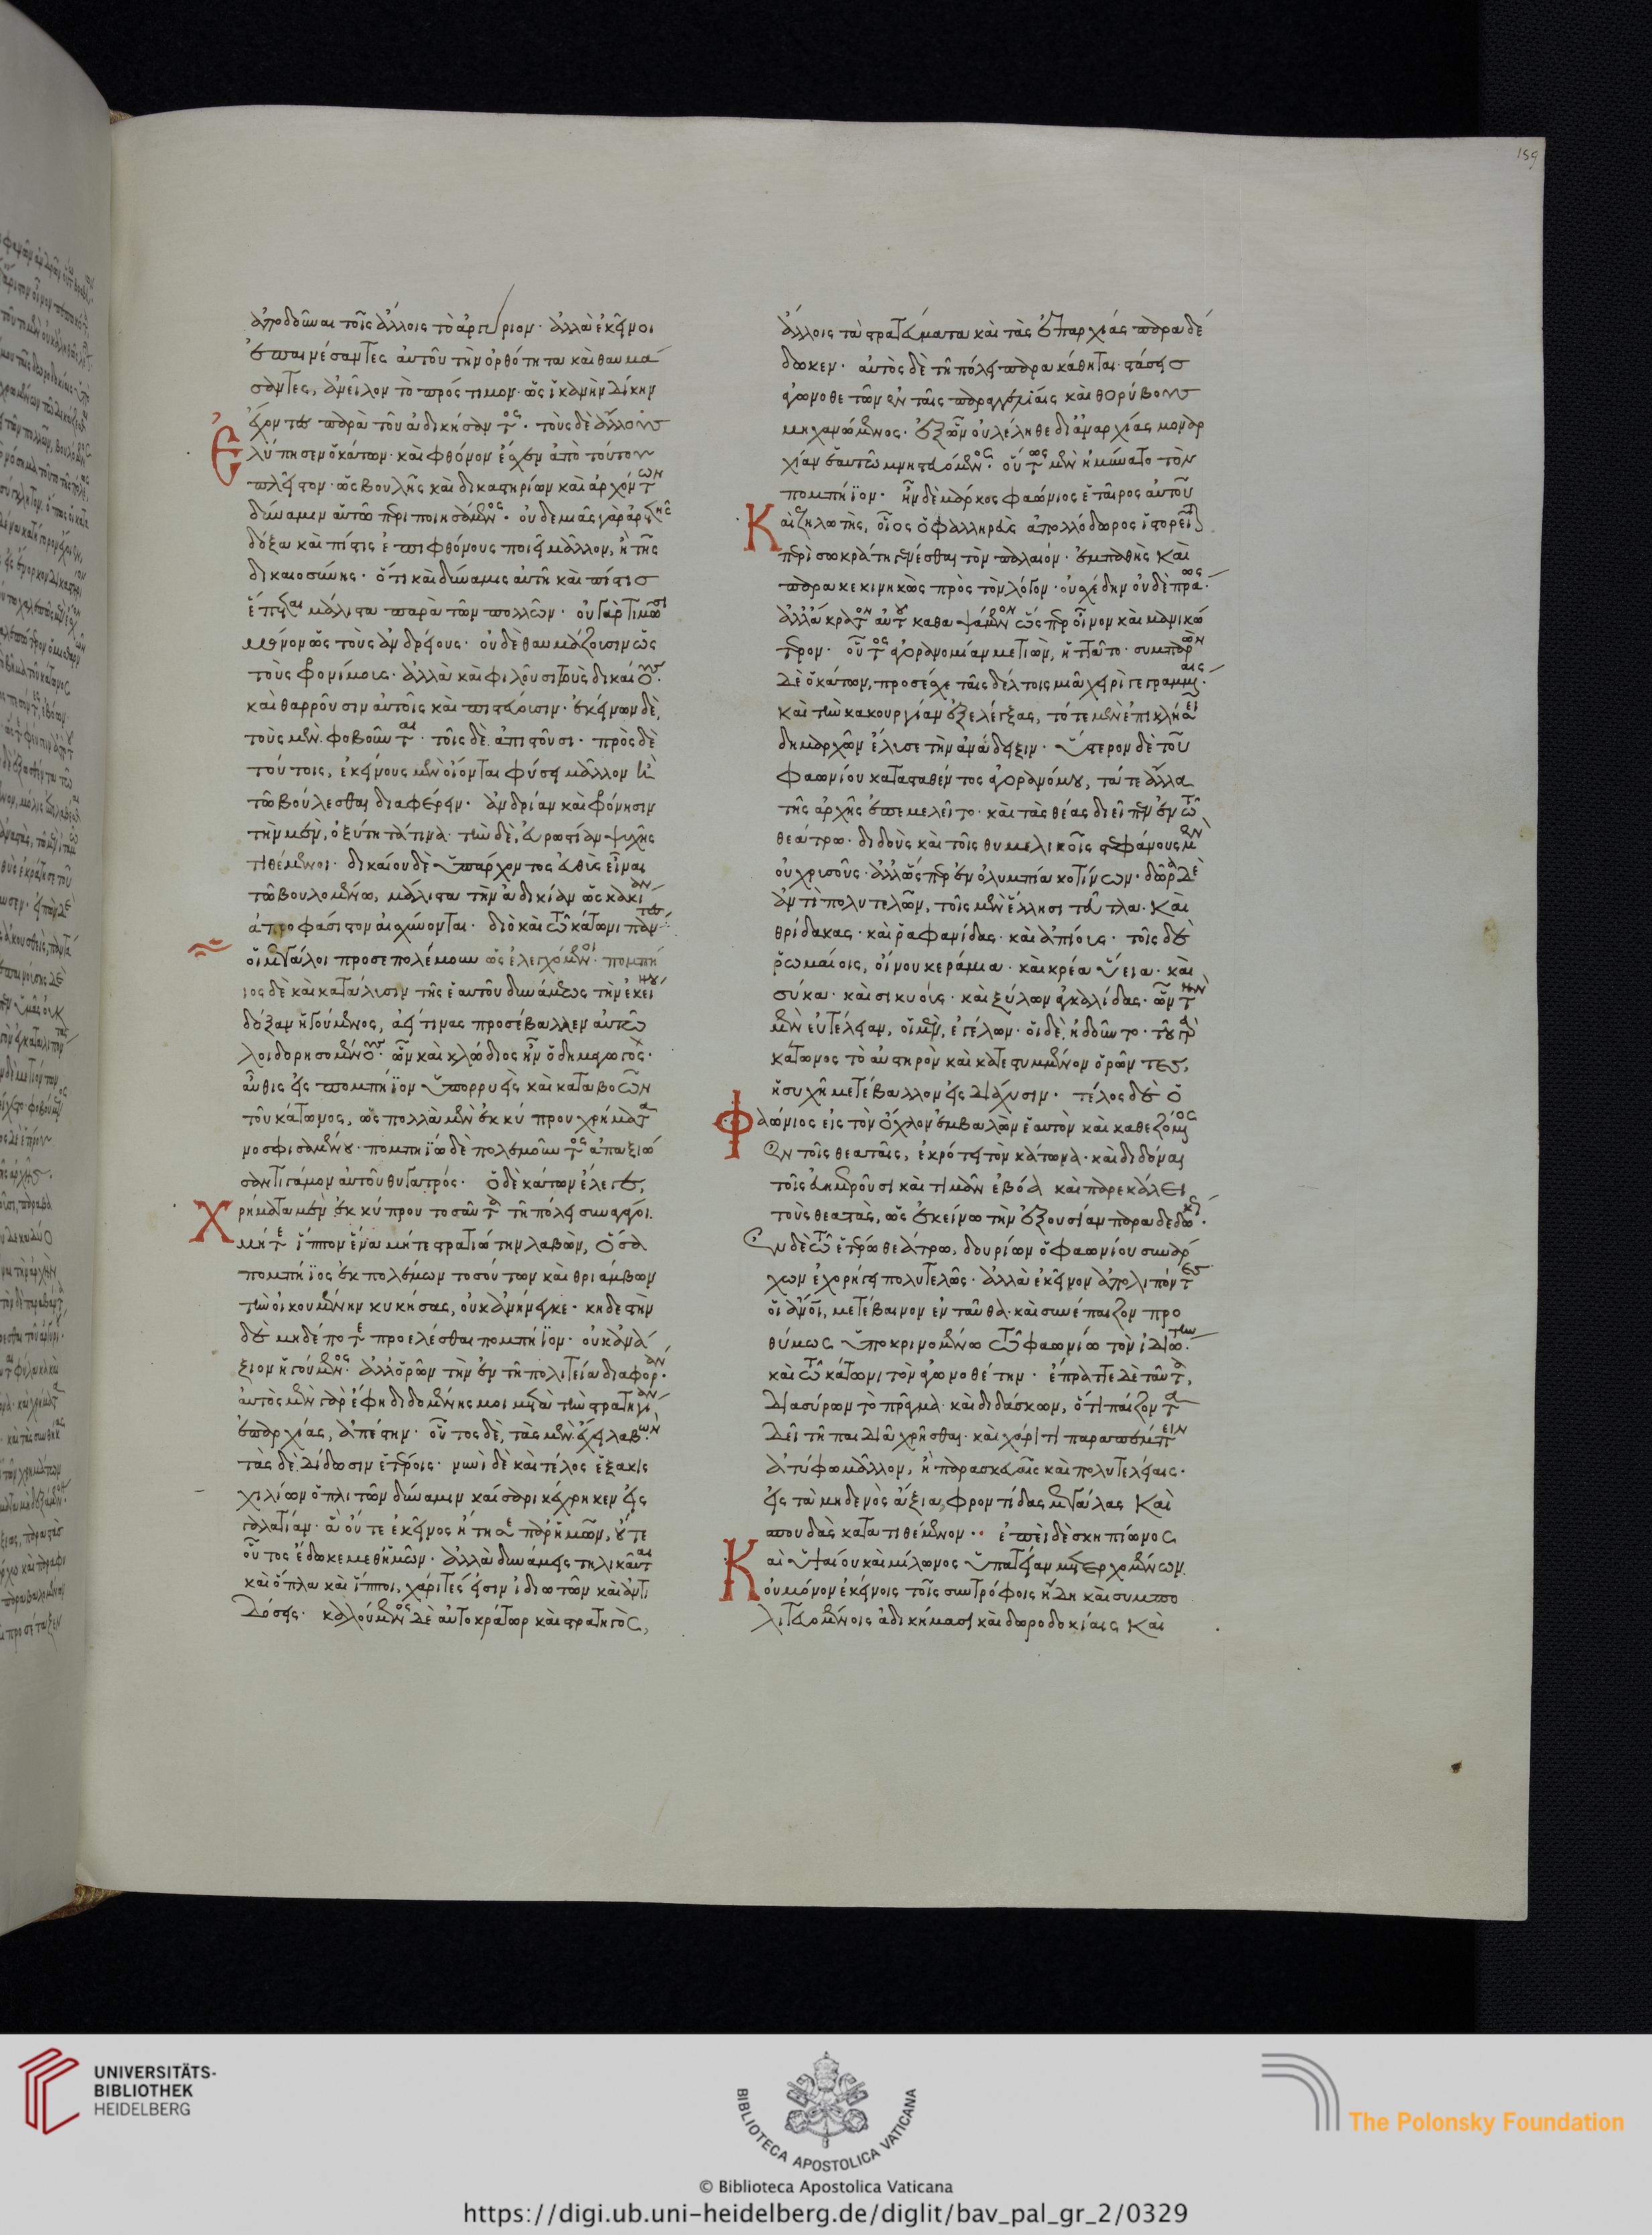 159
ἀποδοῦναι τοῖς ἄλλοις τὸ ἀργύριον· ἀλλὰ ἐκεῖνοι
ἐπαινέσαντες αὐτοῦ τὴν ὀρθότητα καὶ θαυμά
σαντες, ἀνεῖλον τὸ πρόστιμον· ὡς ἱκανὴν δίκην
ἔχοντες παρὰ τοῦ ἀδικήσαντος· τοὺς δὲ ἄλλους
Ἐλύπησεν ὁ κάτων· καὶ φθόνον ἔσχεν ἀπὸ τούτου
πλεῖστον· ὡς βουλῆς καὶ δικαστηρίων καὶ ἀρχόντων
δύναμιν αὑτῶ περιποιησάμενος· οὐδεμιᾶς γὰρ ἀρετῆς
δόξα καὶ πίστις ἐπιφθόνους ποιεῖ μᾶλλον, ἢ τῆς
δικαιοσύνης· ὅτι καὶ δύναμις αὐτῆ καὶ πίστις
ἕπεται μάλιστα παρὰ τῶν πολλῶν· οὐ γὰρ τιμῶσι
μόνον ὡς τοὺς ἀνδρείους· οὐδὲ θαυμάζουσιν ὡς
τοὺς φρονίμους· ἀλλὰ καὶ φιλοῦσι τοὺς δικαίους·
καὶ θαρροῦσιν αὐτοῖς καὶ πιστεύουσιν· ἐκείνων δὲ,
τοὺς μὲν φοβοῦνται· τοῖς δὲ ἀπιστοῦσι· πρὸς δὲ
τούτοις, ἐκείνους μὲν οἴονται φύσει μᾶλλον ἢ
τῶ βούλεσθαι διαφέρειν· ἀνδρίαν καὶ φρόνησιν
τὴν μὲν, ὀξύτητά τινα· τὴν δὲ, εὐρωστίαν ψυχῆς
τιθέμενοι· δικαίου δὲ ὑπάρχοντος εὐθὺς εἶναι
τῶ βουλομένω, μάλιστα τὴν ἀδικίαν ὡς κακίαν
ἀπροφάσιστον αἰσχύνονται· διὸ καὶ τῶ κάτωνι πάντες
οἱ μεγάλοι προσεπολέμουν ὡς ἐλεγχόμενοι· πομπή
ιος δὲ καὶ κατάλυσιν τῆς ἑαυτοῦ δυνάμεως τὴν ἐκείνου
δόξαν ἡγούμενος, ἀεί τινας προσέβαλλεν αὐτῶ
λοιδορησομένους· ὧν καὶ κλώδιος ἦν ὁ δημαγωγὸς·
αὖθις εἰς πομπήϊον ὑπορρυεὶς καὶ καταβοῶν
τοῦ κάτωνος, ὡς πολλὰ μὲν ἐκ κύπρου χρήματα
νοσφισαμένου· πομπηΐω δὲ πολεμοῦντος ἀπαξιώ
σαντι γάμον αὐτοῦ θυγατρός· ὁ δὲ κάτων ἔλεγεν,
Χρήματα μὲν ἐκ κύπρου τοσαῦτα τῆ πόλει συναγαγεῖν·
μήτε ἵππον ἕνα μήτε στρατιώτην λαβὼν, ὅσα
πομπήϊος ἐκ πολέμων τοσούτων καὶ θριάμβων
τὴν οἰκουμένην κυκήσας, οὐκ ἀνήνεγκε· κηδεστὴν
δὲ μηδέποτε προελέσθαι πομπήϊον· οὐκ ἀνά
ξιον ἡγούμενος· ἀλλ' ὁρῶν τὴν ἐν τῆ πολιτεία διαφοράν·
αὐτὸς μὲν γὰρ ἔφη διδομένης μοι μετὰ τὴν στρατηγίαν
ἐπαρχίας, ἀπέστην· οὗτος δὲ, τὰς μὲν ἔχει λαβών·
τὰς δὲ δίδωσιν ἑτέροις· νυνὶ δὲ καὶ τέλος ἑξακις
χιλίων ὁπλιτῶν δύναμιν καίσαρι κέχρηκεν εἰς
γαλατίαν· ἃ οὔτε ἐκεῖνος ἤτησε παρ' ἡμῶν, οὔτε
οὗτος ἔδωκε μεθ' ἡμῶν· ἀλλὰ δυνάμεις τηλικαῦται
καὶ ὅπλα καὶ ἵπποι, χάριτές εἰσιν ἰδιωτῶν καὶ ἀντι
δόσεις· καλούμενος δὲ αὐτοκράτωρ καὶ στρατηγὸς,
ἄλλοις τὰ στρατεύματα καὶ τὰς ἐπαρχίας παραδέ
δωκεν· αὐτὸς δὲ τῆ πόλει παρακάθηται· στάσεις
ἀγωνοθετῶν ἐν ταῖς παραγγελίαις καὶ θορύβους
μηχανώμενος· ἐξ ὧν οὐ λέληθε δι' ἀναρχίας μοναρ
χίαν ἑαυτῶ μνηστευόμενος· οὕτως μὲν ἠμύνατο τὸν
πομπήϊον· ἦν δὲ μάρκος φαώνιος ἑταῖρος αὐτοῦ
Καὶ ζηλωτὴς, οἷος ὁ φαλληρεὺς ἀπολλόδωρος ἱστορεῖται
περὶ σωκράτη γενέσθαι τὸν παλαιόν· ἐμπαθὴς καὶ
παρακεκινηκὼς πρὸς τὸν λόγον· οὐ σχέδην οὐδὲ πράως·
ἀλλ' ἄκρατον αὐτοῦ καθαψάμενον ὥσπερ οἶνον καὶ μανικώ
τερον· οὗτος ἀγορανομίαν μετιὼν, ἡττᾶτο· συμπαρὼν
δὲ ὁ κάτων, προσέσχε ταῖς δέλτοις μιᾶ χειρὶ γεγραμμέναις·
καὶ τὴν κακουργίαν ἐξελέγξας, τότε μὲν ἐπικλήσει
δημάρχων ἔλυσε τὴν ἀνάδειξιν· ὕστερον δὲ τοῦ
φαωνίου κατασταθέντος ἀγορανόμου, τά τε ἄλλα
τῆς ἀρχῆς ἐπεμελεῖτο· καὶ τὰς θέας διεῖπεν ἐν τῶ
θεάτρω· διδοὺς καὶ τοῖς θυμελικοῖς στεφάνους μὲν
οὐ χρυσοῦς· ἀλλ' ὥσπερ ἐν ὀλυμπία κοτίνων· δῶρα δὲ
ἀντὶ πολυτελῶν, τοῖς μὲν ἕλλησι τεῦτλα· καὶ
θρίδακας· καὶ ῥαφανίδας· καὶ ἀπίους· τοῖς δὲ
ῥωμαίοις, οἴνου κεράμια· καὶ κρέα ὕεια· καὶ
σύκα· καὶ σικυούς· καὶ ξύλων ἀγκαλίδας· ὧν τὴν
μὲν εὐτέλειαν, οἱ μὲν, ἐγέλων· οἱ δὲ, ἡδοῦντο· τοῦ
κάτωνος τὸ αὐστηρὸν καὶ κατεστυμμένον ὁρῶντες,
ἡσυχῆ μετέβαλλον εἰς διάχυσιν· τέλος δὲ ὁ
Φαώνιος εἰς τὸν ὄχλον ἐμβαλὼν ἑαυτὸν καὶ καθεζόμενος
ἐν τοῖς θεαταῖς, ἐκρότει τὸν κάτωνα· καὶ διδόναι
τοῖς εὐημεροῦσι καὶ τιμᾶν ἐβόα καὶ παρεκάλει
τοὺς θεατὰς, ὡς ἐκείνω τὴν ἐξουσίαν παραδεδωκώς·
ἐν δὲ τῶ ἑτέρω θεάτρω, κουρίων ὁ φαωνίου συνάρ
χων ἐχορήγει πολυτελῶς· ἀλλὰ ἐκεῖνον ἀπολιπόντες
οἱ ἄνθρωποι, μετέβαινον ἐνταῦθα· καὶ συνέπαιζον προ
θύμως ὑποκρινομένω τῶ φαωνίω τὸν ἰδιώτην·
καὶ τῶ κάτωνι τὸν ἀγωνοθέτην· ἔπραττε δὲ ταῦτα,
διασύρων τὸ πρᾶγμα· καὶ διδάσκων, ὅτι παίζοντα
δεῖ τῆ παιδιᾶ χρῆσθαι· καὶ χάριτι παραπέμπειν
ἀτύφω μᾶλλον, ἢ παρασκευαῖς καὶ πολυτελείαις·
εἰς τὰ μηδενὸς ἄξια, φροντίδας μεγάλας καὶ
σπουδὰς κατατιθέμενον· ἐπεὶ δὲ σκηπίωνος
Καὶ ὑψαίου καὶ μίλωνος ὑπατείαν μετερχομένων·
οὐ μόνον ἐκείνοις τοῖς συντρόφοις ἤδη καὶ συμπο
λιτευομένοις ἀδικήμασι καὶ δωροδοκίαις καὶ
UNIVERSITÄTS-
BIBLIOTHEK
HEIDELBERG
BIBLIOTECA APOSTOLICA VATICANA
The Polonsky Foundation
© Biblioteca Apostolica Vaticana
https://digi.ub.uni-heidelberg.de/diglit/bav_pal_gr_2/0329